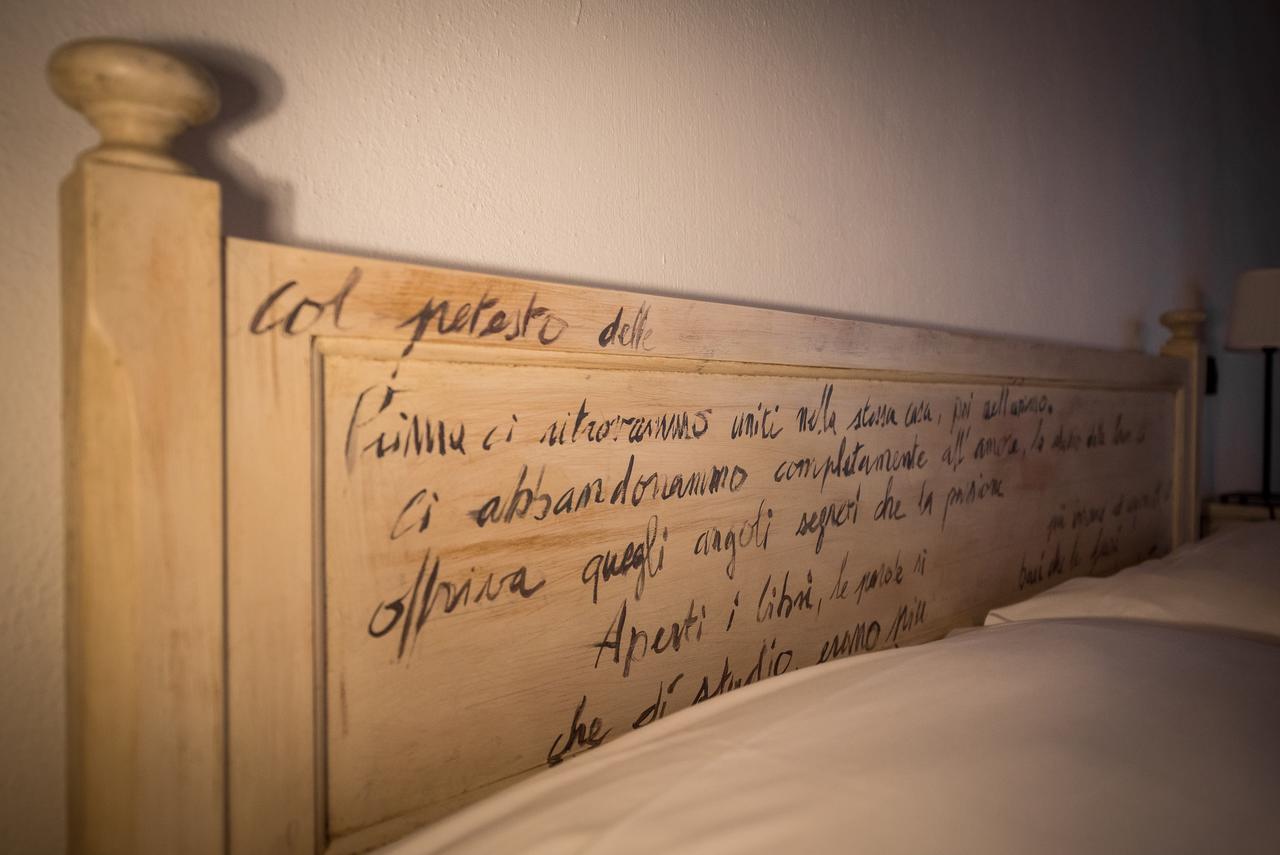 col petesto delle
Prima ci ritrovammo uniti nella stessa casa, poi nell'animo.
Ci abbandonammo completamente all'amore, lo studio dava
offriva quegli angoli segreti che la passione
Aperti i libri, le parole si
che di studio, erano più
baci che le frasi